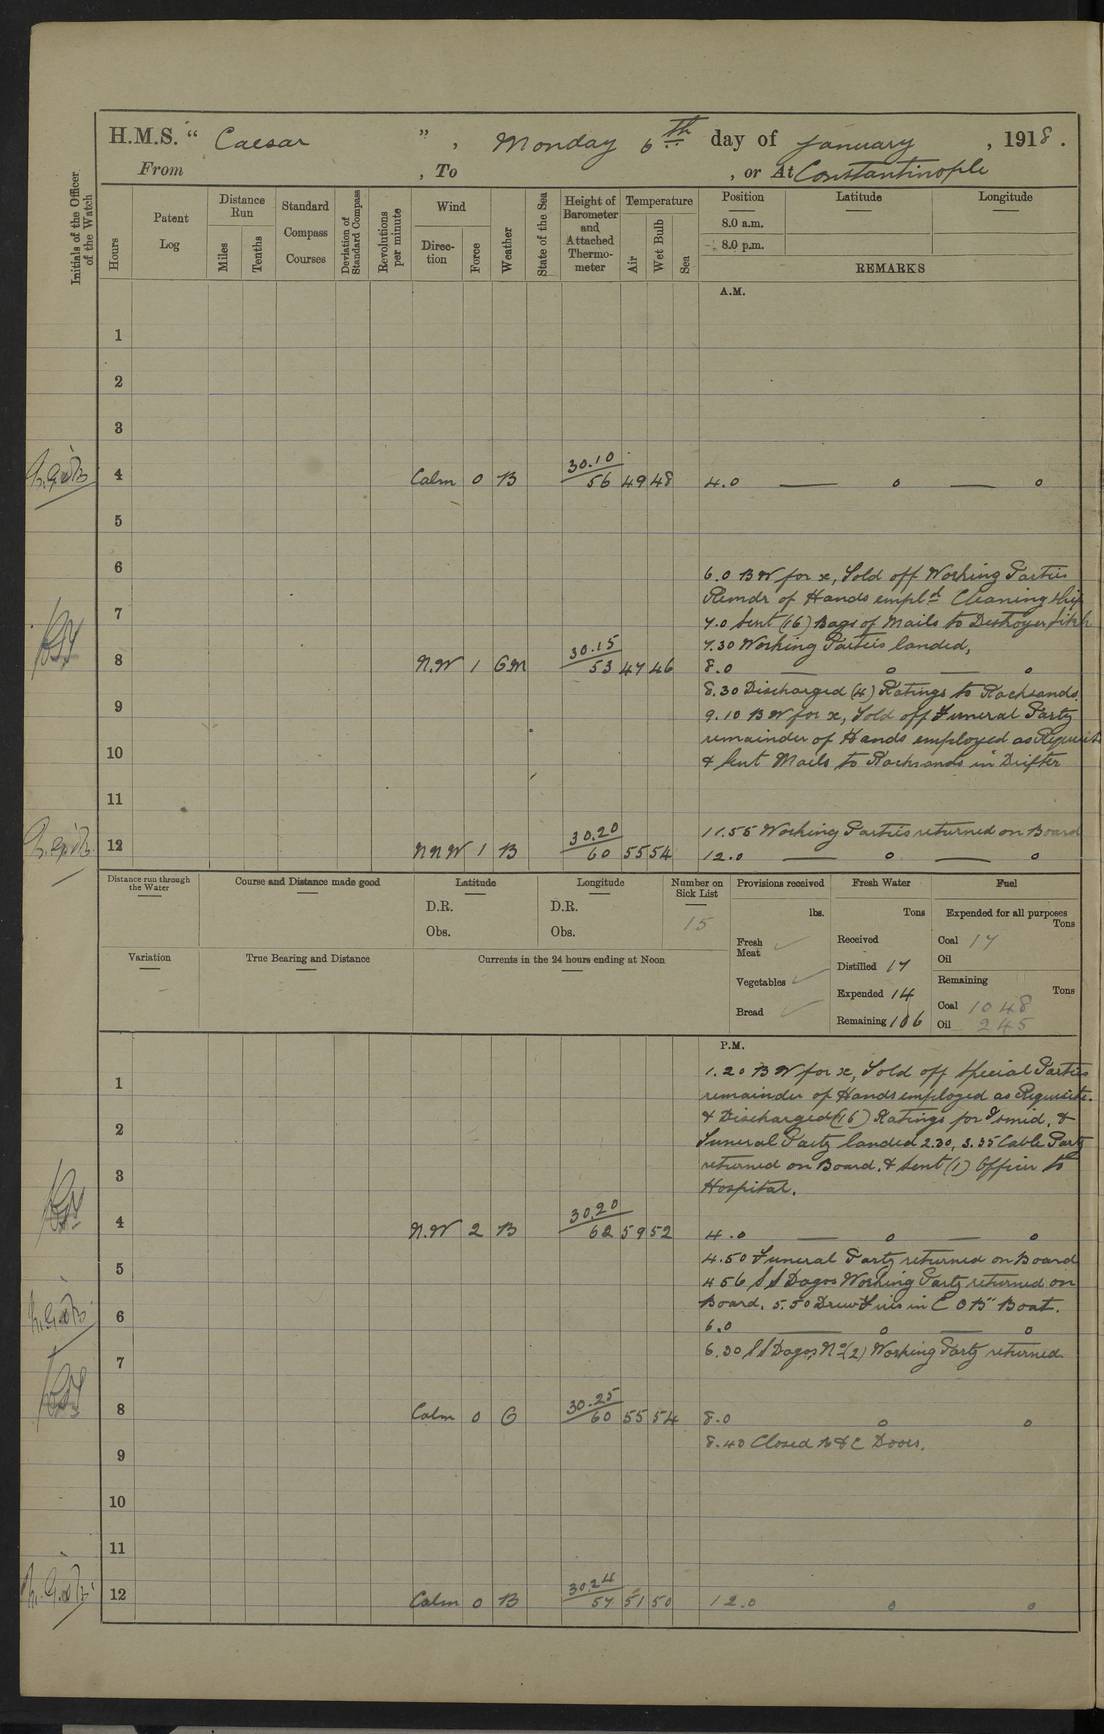 H.M.S. “ Caesar ” , Monday 6th day of January , 1918 .
From , To , or At Constantinople
Initials of the Officer of the Watch
Hours
Patent Log
Distance Run
Miles
Tenths
Standard Compass Courses
Deviation of Standard Compass
Revolutions per minute
Wind
Direc- tion
Force
Weather
State of the Sea
Height of Barometer and Attached Thermo- meter
Temperature
Air
Wet Bulb
Sea
Position Latitude Longitude
8.0 a.m.
8.0 p.m.
REMARKS
A.M.
1
2
3
4 Calm 0 B 30.10 56 49 48 4.0 — 0 — 0
5
6
6.0 BW for x, Told off Working Parties
Remdr of Hands empld Cleaning Ship
7
7.0 Sent (16) Bags of Mails to Destroyer
7.30 Working Parties landed,
8 N.W 1 GM 30.15 53 47 46 8.0 — 0 — 0
8.30 Discharged (4) Ratings to Rocksands
9
9.10 BW for x, Told off Funeral Party
remainder of Hands employed as Requisite
10
& Sent Mails to Rocksands in Drifter
11
11.55 Working Parties returned on Board
12 NNW 1 B 30.20 60 55 54 12.0 — 0 — 0
Distance run through the Water
Course and Distance made good
Latitude
D.R.
Obs.
Longitude
D.R.
Obs.
Number on Sick List
15
Provisions received
lbs.
Fresh Meat
Vegetables
Bread
Fresh Water
Tons
Received
Distilled 17
Expended 14
Remaining 106
Fuel
Expended for all purposes
Tons
Coal 17
Oil
Remaining
Tons
Coal 1048
Oil 245
Variation
True Bearing and Distance
Currents in the 24 hours ending at Noon
P.M.
1
1.20 BW for x, Told off Special Parties
remainder of Hands employed as Requisite.
& Discharged (16) Ratings for Ismid, &
2
Funeral Party landed 2.30, 3.35 Cable Party
3
returned on Board. & Sent (1) Officer to
Hospital.
4 N.W 2 B 30.20 62 59 52 4.0 — 0 — 0
4.50 Funeral Party returned on Board
5
4 56 SS Dagos Working Party returned on
Board. 5.50 Drew Fires in Boat.
6
6.0 — 0 — 0
6.30 SS Dagos No (2) Working Party returned
7
8 Calm 0 G 30.25 60 55 54 8.0 0 0
8.40 Closed Doors.
9
10
11
12 Calm 0 B 30.24 57 51 50 12.0 0 0